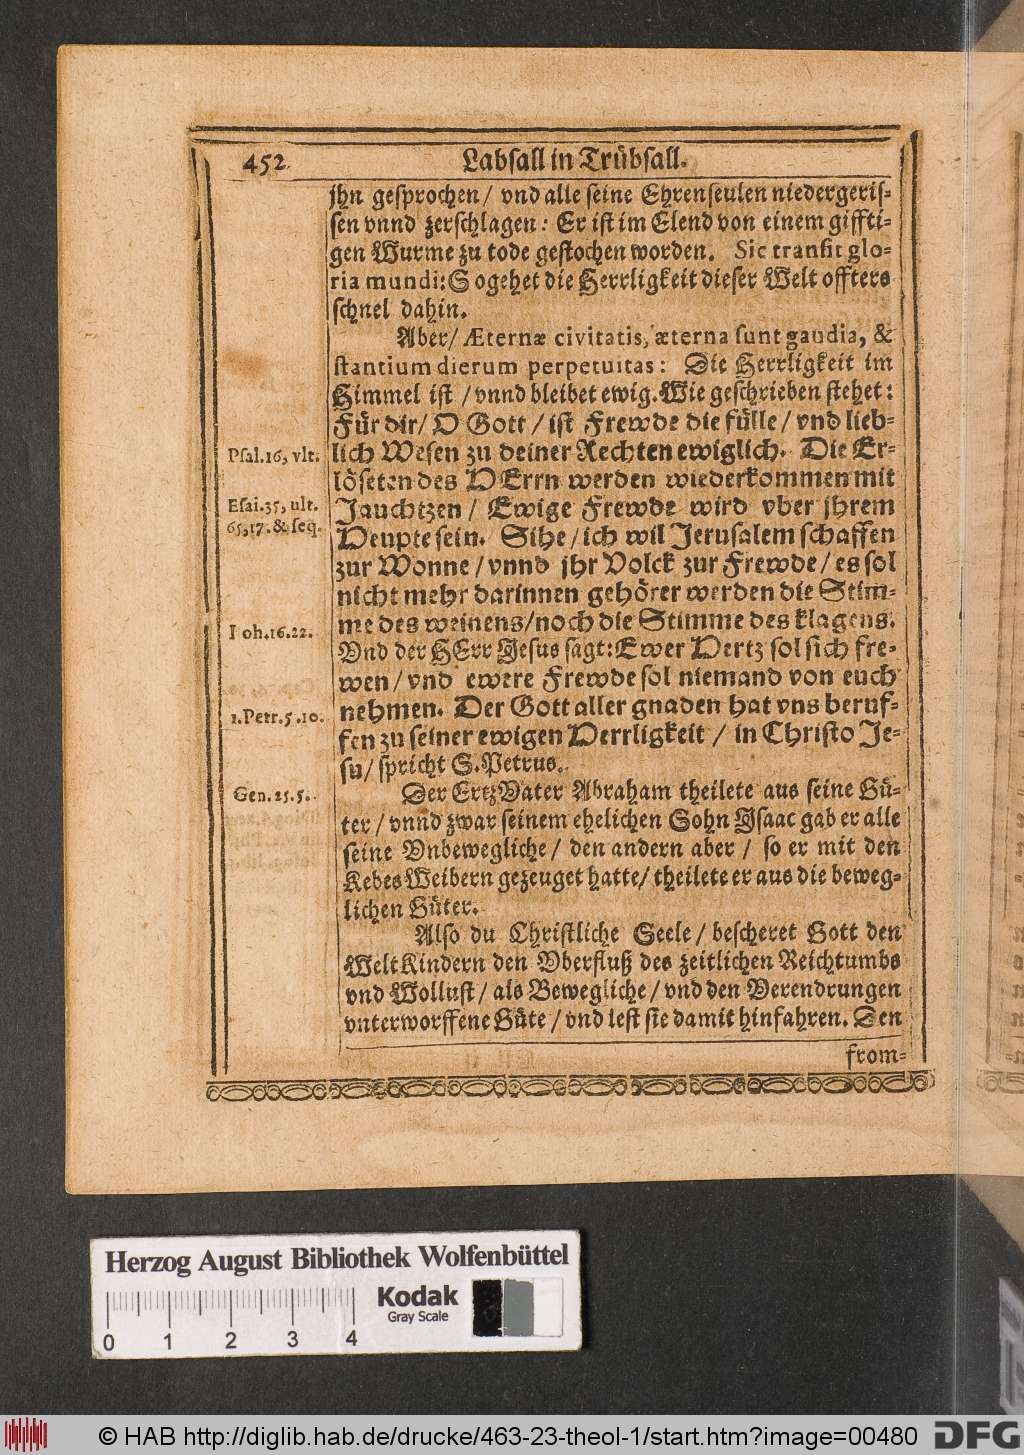 452 Labsall in Trübsall.
jhn gesprochen / vnd alle seine Ehrenseulen niedergeris-
sen vnnd zerschlagen: Er ist im Elend von einem giffti-
gen Wurme zu tode gestochen worden. Sic transit glo-
ria mundi: So gehet die Herrligkeit dieser Welt offters
schnel dahin.
Aber / Æternæ civitatis, æterna sunt gaudia, &
stantium dierum perpetuitas: Die Herrligkeit im
Himmel ist / vnnd bleibet ewig. Wie geschrieben stehet:
Für dir / O Gott / ist Frewde die fülle / vnd lieb-
Psal.16, vlt. lich Wesen zu deiner Rechten ewiglich. Die Er-
löseten des HErrn werden wiederkommen mit
Esai.35, ult. Jauchtzen / Ewige Frewde wird vber jhrem
65,17. & seq. Heupte sein. Sihe / ich wil Jerusalem schaffen
zur Wonne / vnnd jhr Volck zur Frewde / es sol
nicht mehr darinnen gehörer werden die Stim-
me des weinens / noch die Stimme des klagens.
Ioh.16.22. Vnd der HErr Jesus sagt: Ewer Hertz sol sich fre-
wen / vnd ewere Frewde sol niemand von euch
1.Petr.5.10. nehmen. Der Gott aller gnaden hat vns beruf-
fen zu seiner ewigen Herrligkeit / in Christo Je-
su / spricht S. Petrus.
Gen.25.5. Der ErtzVater Abraham theilete aus seine Gü-
ter / vnnd zwar seinem ehelichen Sohn Isaac gab er alle
seine Vnbewegliche / den andern aber / so er mit den
KebesWeibern gezeuget hatte / theilete er aus die beweg-
lichen Güter.
Also du Christliche Seele / bescheret Gott den
WeltKindern den Vberfluß des zeitlichen Reichtumbs
vnd Wollust / als Bewegliche / vnd den Verendrungen
vnterworffene Güte / vnd lest sie damit hinfahren. Den
from-
Herzog August Bibliothek Wolfenbüttel
Kodak
Gray Scale
0 1 2 3 4
© HAB http://diglib.hab.de/drucke/463-23-theol-1/start.htm?image=00480 DFG